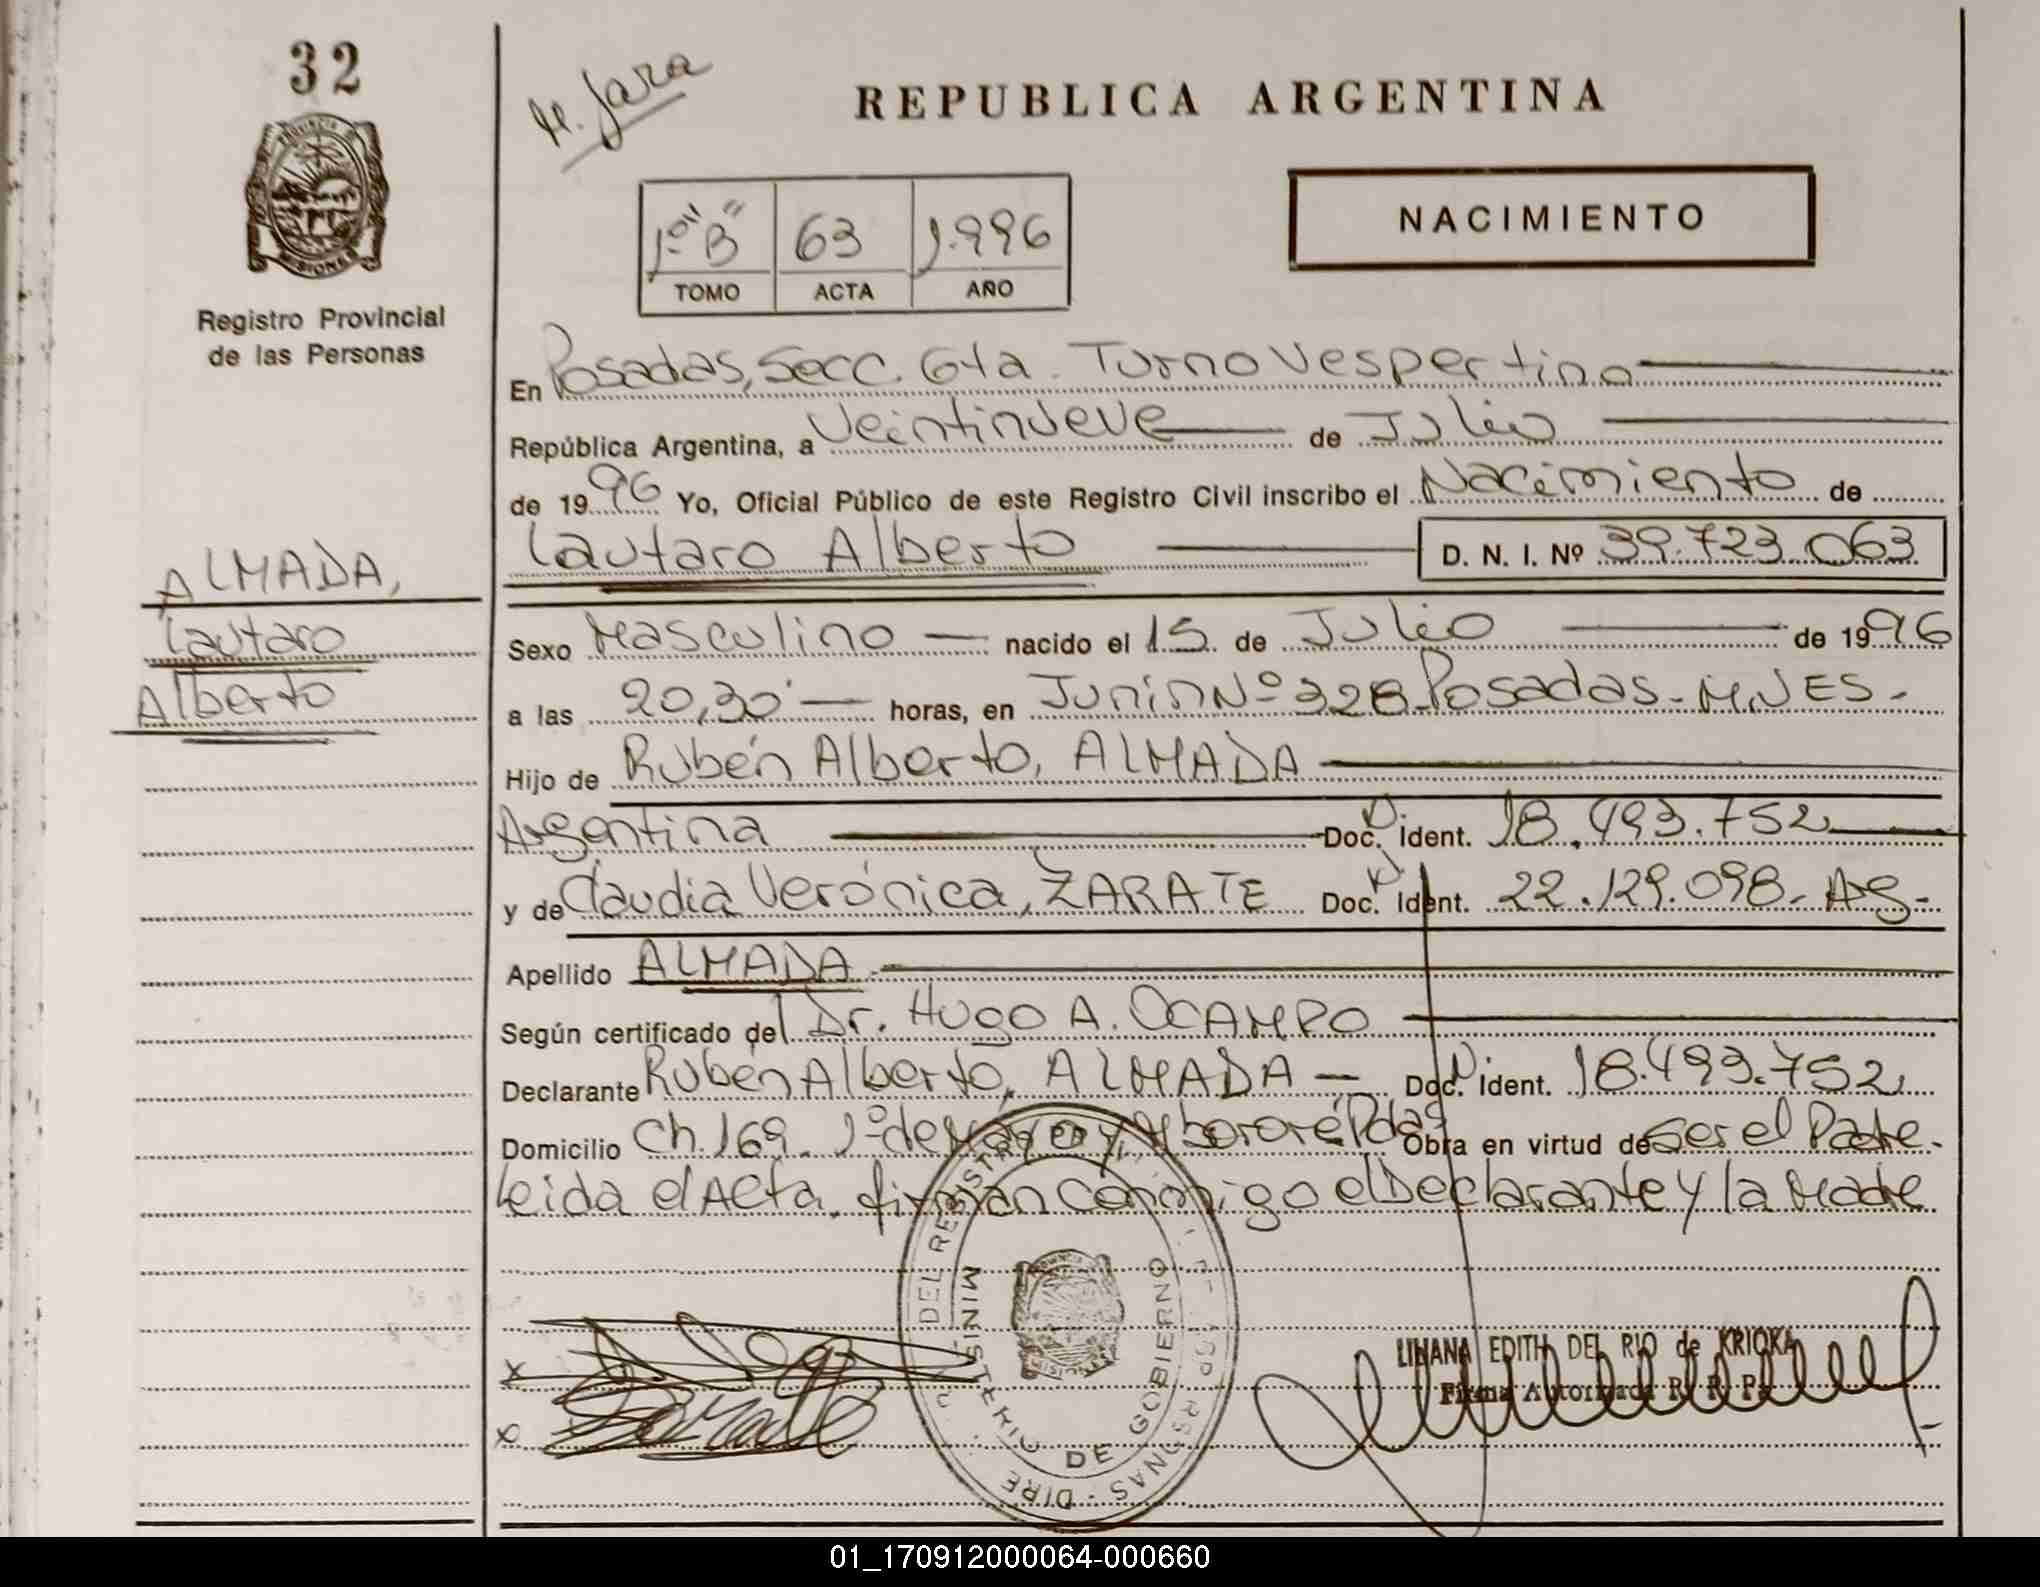 32
Registro Provincial
de las Personas
ALMADA,
Lautaro
Alberto
H. Jara
REPUBLICA ARGENTINA
NACIMIENTO
1º "B" 63 1.996
TOMO ACTA AÑO
En Posadas, Secc. 6ta. Turno Vespertino
República Argentina, a Veintinueve de Julio
de 1996 Yo, Oficial Público de este Registro Civil inscribo el Nacimiento de
Lautaro Alberto D. N. I. Nº 39.723.063
Sexo Masculino nacido el 15 de Julio de 1996
a las 20,30' horas, en Junín Nº 328 Posadas - MNES -
Hijo de Rubén Alberto, ALMADA
Argentina Doc. Ident. 18.493.752
y de Claudia Verónica, ZARATE Doc. Ident. 22.129.098 - Arg -
Apellido ALMADA
Según certificado del Dr. Hugo A. OCAMPO
Declarante Rubén Alberto, ALMADA Doc. ident. 18.493.752
Domicilio Ch. 169. 1º de Mayo y Mbororé Pdas Obra en virtud de Ser el Padre.
Leida el Acta, firman conmigo el Declarante y la Madre
DEL REGISTR
MINISTERIO DE GOBIERNO
PERSONAS - DIRE
x
x Zarate
LILIANA EDITH DEL RIO de KRIOKA
Firma Autorizada R. R. P.
01_170912000064-000660